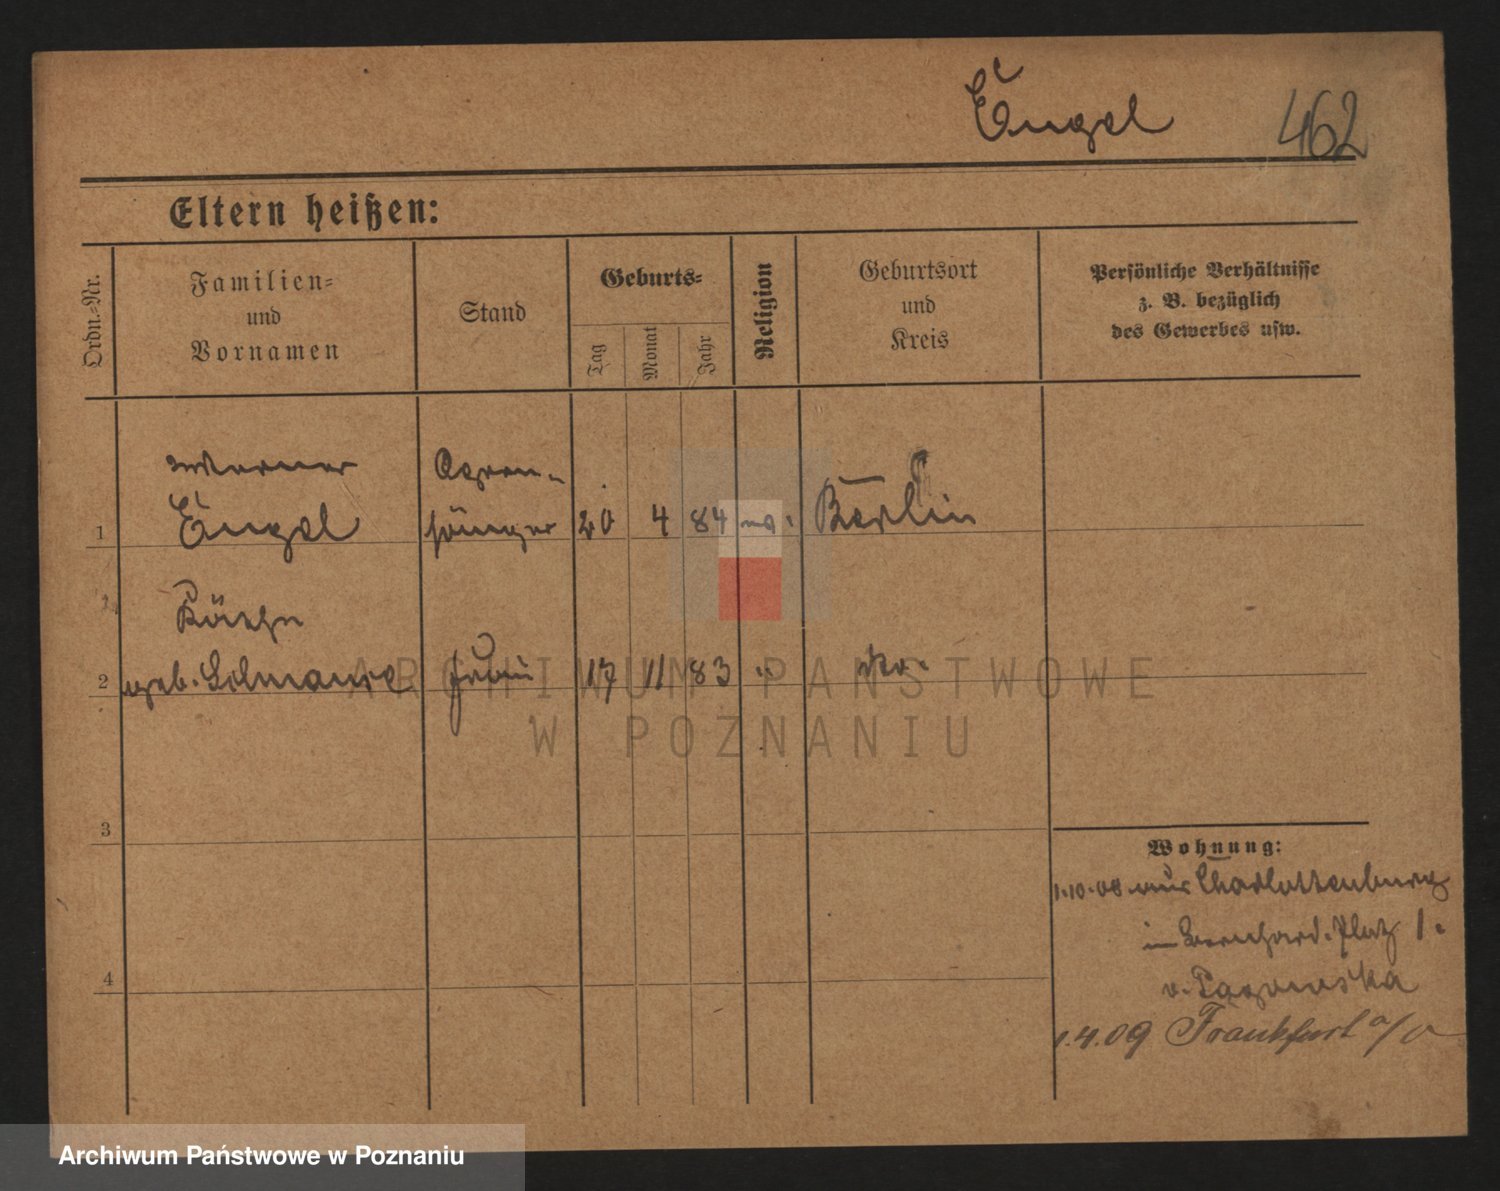 Engel 462
Eltern heißen:
Ordn.-Nr.
Familien-
und
Vornamen
Stand
Geburts-
Tag
Monat
Jahr
Religion
Geburtsort
und
Kreis
Persönliche Verhältnisse
z. B. bezüglich
des Gewerbes usw.
Werner Opern-
1 Engel sänger 20 4 84 Berlin
Käthe
2 geb. Frau 17 11 83 " do.
3
4
Wohnung:
1.10.08 aus Charlottenburg
in Bernhard. Platz 1.
v.
1.4.09 Frankfurt a/O
ARCHIWUM PAŃSTWOWE
W POZNANIU
Archiwum Państwowe w Poznaniu